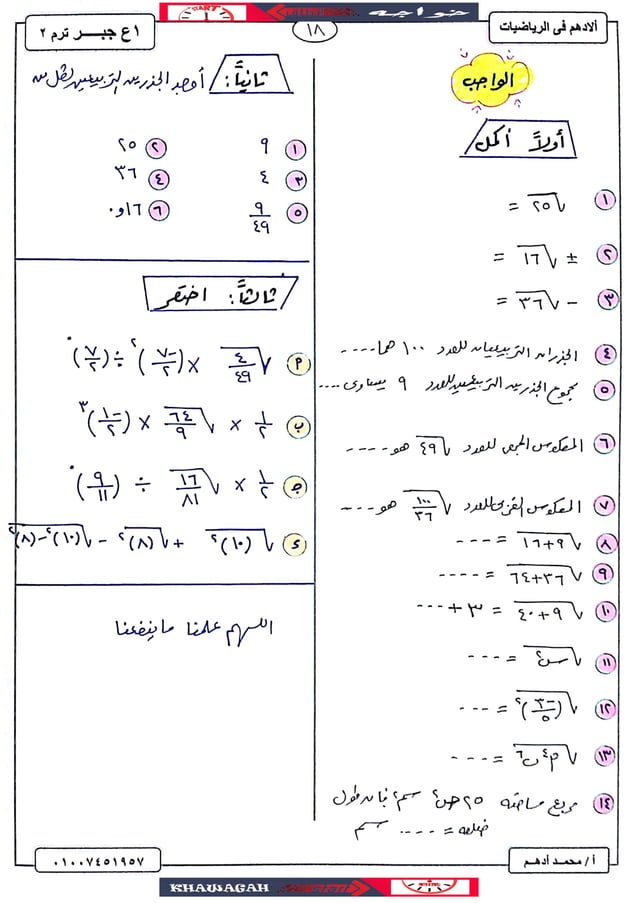 خواجه
START
ألادهم فى الرياضيات
١٨
١ع جبر ترم ٢
الواجب
أولاً أكمل
١ √٢٥ =
٢ ± √١٦ =
٣ - √٣٦ =
٤ الجذران التربيعيان للعدد ١٠٠ هما ....
٥ مجموع الجذرين التربيعيين للعدد ٩ يساوى ....
٦ المعكوس الجمعى للعدد √٤٩ هو ....
٧ المعكوس الضربى للعدد √(١٠٠/٣٦) هو ....
٨ √(٩+١٦) = ...
٩ √(٣٦+٦٤) = ....
١٠ √(٩+٤٠) = ٣ + ...
١١ √س٢ = ...
١٢ √(-٣/٥)٢ = ...
١٣ √(م٤ ن٦) = ...
١٤ مربع مساحته ٢٥ ص٢ سم٢ فإن طول
ضلعه = .... سم
ثانياً: أوجد الجذرين التربيعيين لكل من
١ ٩
٢ ٢٥
٣ ٤
٤ ٣٦
٥ ٩/٤٩
٦ ١٦و٠
ثالثاً: اختصر
م √(٤/٤٩) × (-٧/٢)٢ ÷ (٧/٢)٠
ب ١/٢ × √(٦٤/٩) × (-١/٢)٣
ج ١/٢ × √(١٦/٨١) ÷ (٩/١١)٠
د √(١٠)٢ + √(٨)٢ - √((١٠)٢-(٨)٢)
اللهم علمنا ما ينفعنا
أ/ محمد أدهم
٠١٠٠٧٤٥١٩٥٧
KHAWAGAH